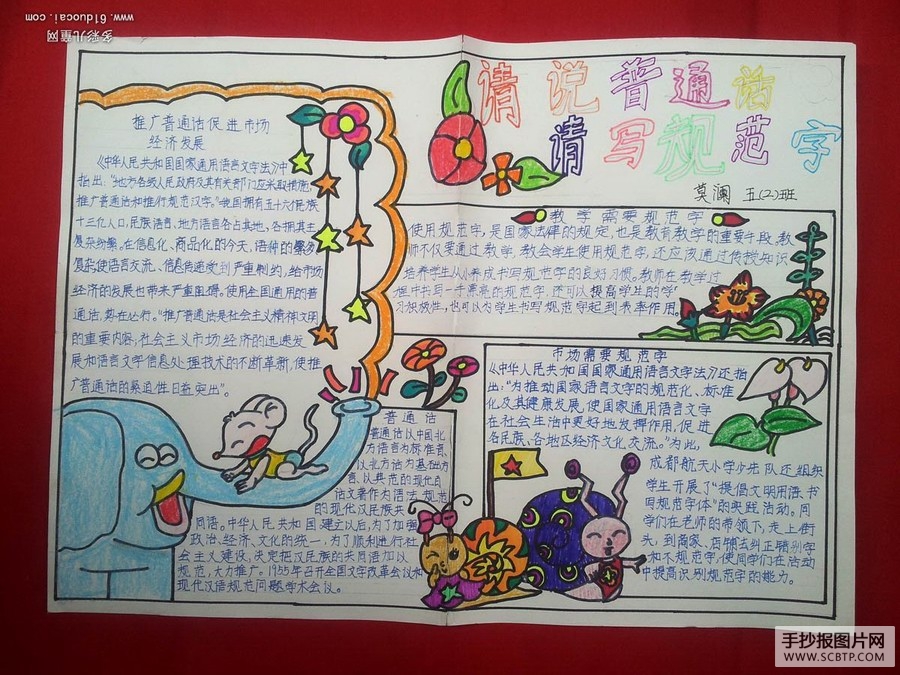 www.61duocai.com
多彩儿童网
请说普通话
请写规范字
莫澜 五(2)班
推广普通话促进市场
经济发展
《中华人民共和国国家通用语言文字法》中
指出:“地方各级人民政府及其有关部门应采取措施,
推广普通话和推行规范汉字。”我国拥有五十六个民族
十三亿人口,民族语言、地方语言各占其地,各拥其主
复杂纷繁。在信息化、商品化的今天,语种的繁多
复杂使语言交流、信息传递受到严重制约,给市场
经济的发展也带来严重阻碍。使用全国通用的普
通话,势在必行。“推广普通话是社会主义精神文明
的重要内容,社会主义市场经济的迅速发
展和语言文字信息处理技术的不断革新,使推
广普通话的紧迫性日益突出”。
教学需要规范字
使用规范字,是国家法律的规定,也是教育教学的重要手段,教
师不仅要通过教学,教会学生使用规范字,还应该通过传授知识
培养学生从小养成书写规范字的良好习惯。教师在教学过
程中书写一手漂亮的规范字,还可以提高学生的学
习积极性,也可以为学生书写规范字起到表率作用。
普通话
普通话以中国北
方语言为标准音,
以北方话为基础方
言,以典范的现代白
话文著作为语法规范
的现代汉民族共
同语。中华人民共和国建立以后,为了加强
政治、经济、文化的统一,为了顺利进行社
会主义建设,决定把汉民族的共同语加以
规范,大力推广。1955年召开全国文字改革会议和
现代汉语规范问题学术会议。
市场需要规范字
《中华人民共和国国家通用语言文字法》还指
出:“为推动国家语言文字的规范化、标准
化及其健康发展,使国家通用语言文字
在社会生活中更好地发挥作用,促进
各民族、各地区经济文化交流。”为此,
成都航天小学少先队还组织
学生开展了“提倡文明用语、书
写规范字体”的实践活动。同
学们在老师的带领下,走上街
头,到商家、店铺去纠正错别字
和不规范字,使同学们在活动
中提高识别规范字的能力。
手抄报图片网
WWW.SCBTP.COM